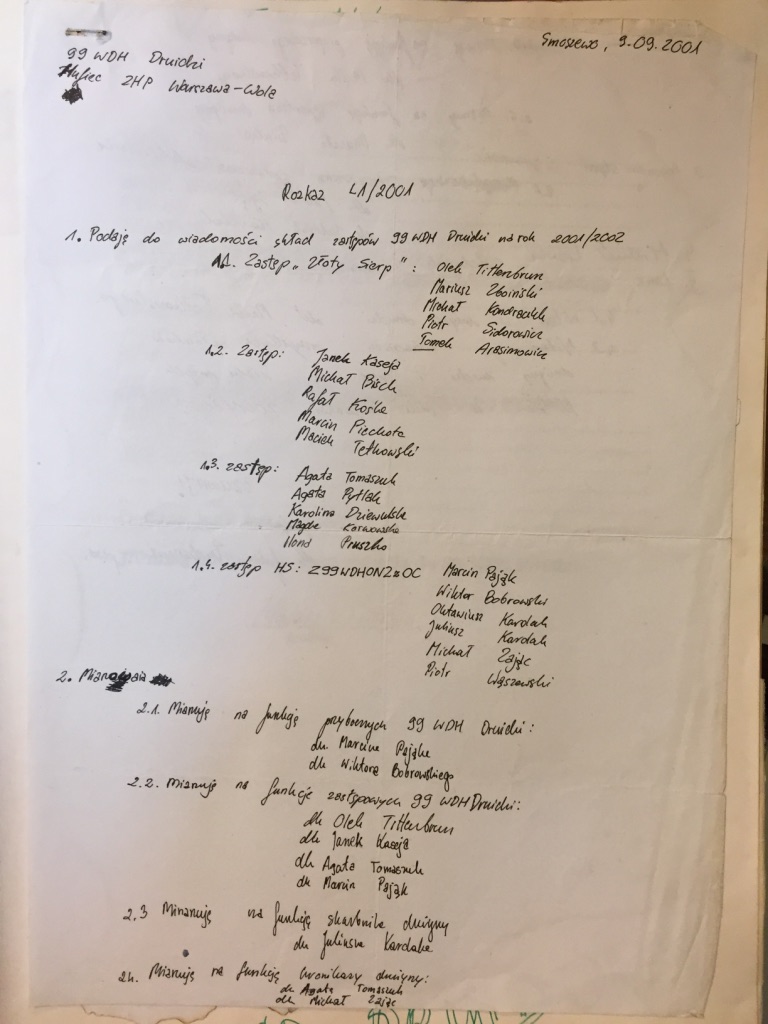 Smoszewo, 9.09.2001
99 WDH Druidzi
Hufiec ZHP Warszawa-Wola
Rozkaz L1/2001
1. Podaję do wiadomości skład zastępów 99 WDH Druidzi na rok 2001/2002
1.1. Zastęp „Złoty Sierp”: Olek Tittenbrun
Mariusz Zboiński
Michał Kondraciuk
Piotr Sidorowicz
Tomek Arasimowicz
1.2. Zastęp: Janek Kaseja
Michał Bisek
Rafał Kośka
Marcin Piechota
Maciek Tetkowski
1.3. zastęp: Agata Tomaszuk
Agata Pytlak
Karolina Dziewulska
Magda Karwowska
Ilona Pruszko
1.4. zastęp HS: Z99WDHONZ OC Marcin Pająk
Wiktor Bobrowski
Oktawiusz Kardak
Juliusz Kardak
Michał Zając
Piotr Wąszewski
2. Mianowania
2.1. Mianuję na funkcję przybocznych 99 WDH Druidzi:
dh. Marcina Pająka
dh Wiktora Bobrowskiego
2.2. Mianuję na funkcje zastępowych 99 WDH Druidzi:
dh Olek Tittenbrun
dh Janek Kaseja
dh Agata Tomaszuk
dh Marcin Pająk
2.3 Minanuję na funkcję skarbnika drużyny
dh Juliusza Kardaka
24. Mianuję na funkcję kronikarzy drużyny:
dh Agata Tomaszuk
dh Michał Zając